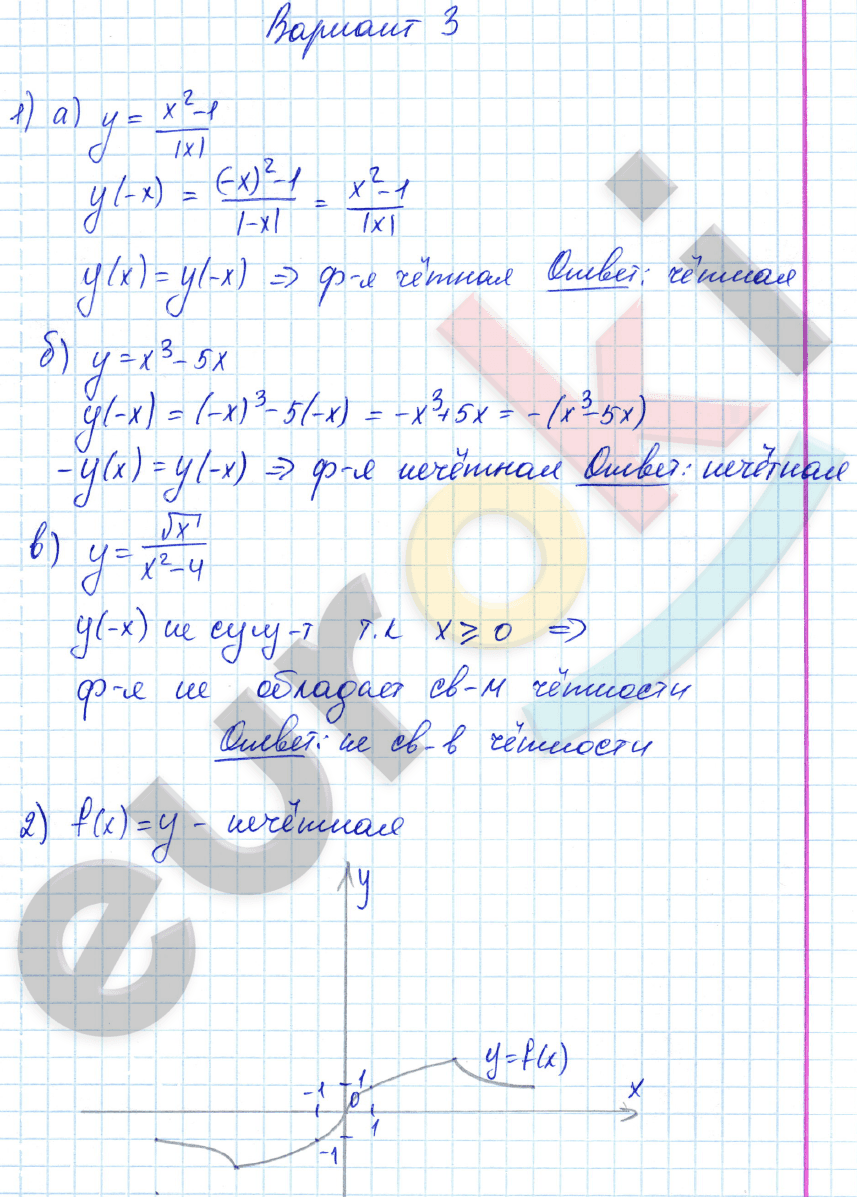 Вариант 3
1) а) y = (x²-1)/|x|
y(-x) = ((-x)²-1)/|-x| = (x²-1)/|x|
y(x) = y(-x) => ф-я чётная Ответ: чётная
б) y = x³ - 5x
y(-x) = (-x)³ - 5(-x) = -x³+5x = -(x³-5x)
-y(x) = y(-x) => ф-я нечётная Ответ: нечётная
в) y = √x/(x²-4)
y(-x) не сущ-т т.к x ≥ 0 =>
ф-я не обладает св-м чётности
Ответ: не св-в чётности
2) f(x) = y - нечётная
y
y=f(x)
-1 1 x
0
1
-1
euroki